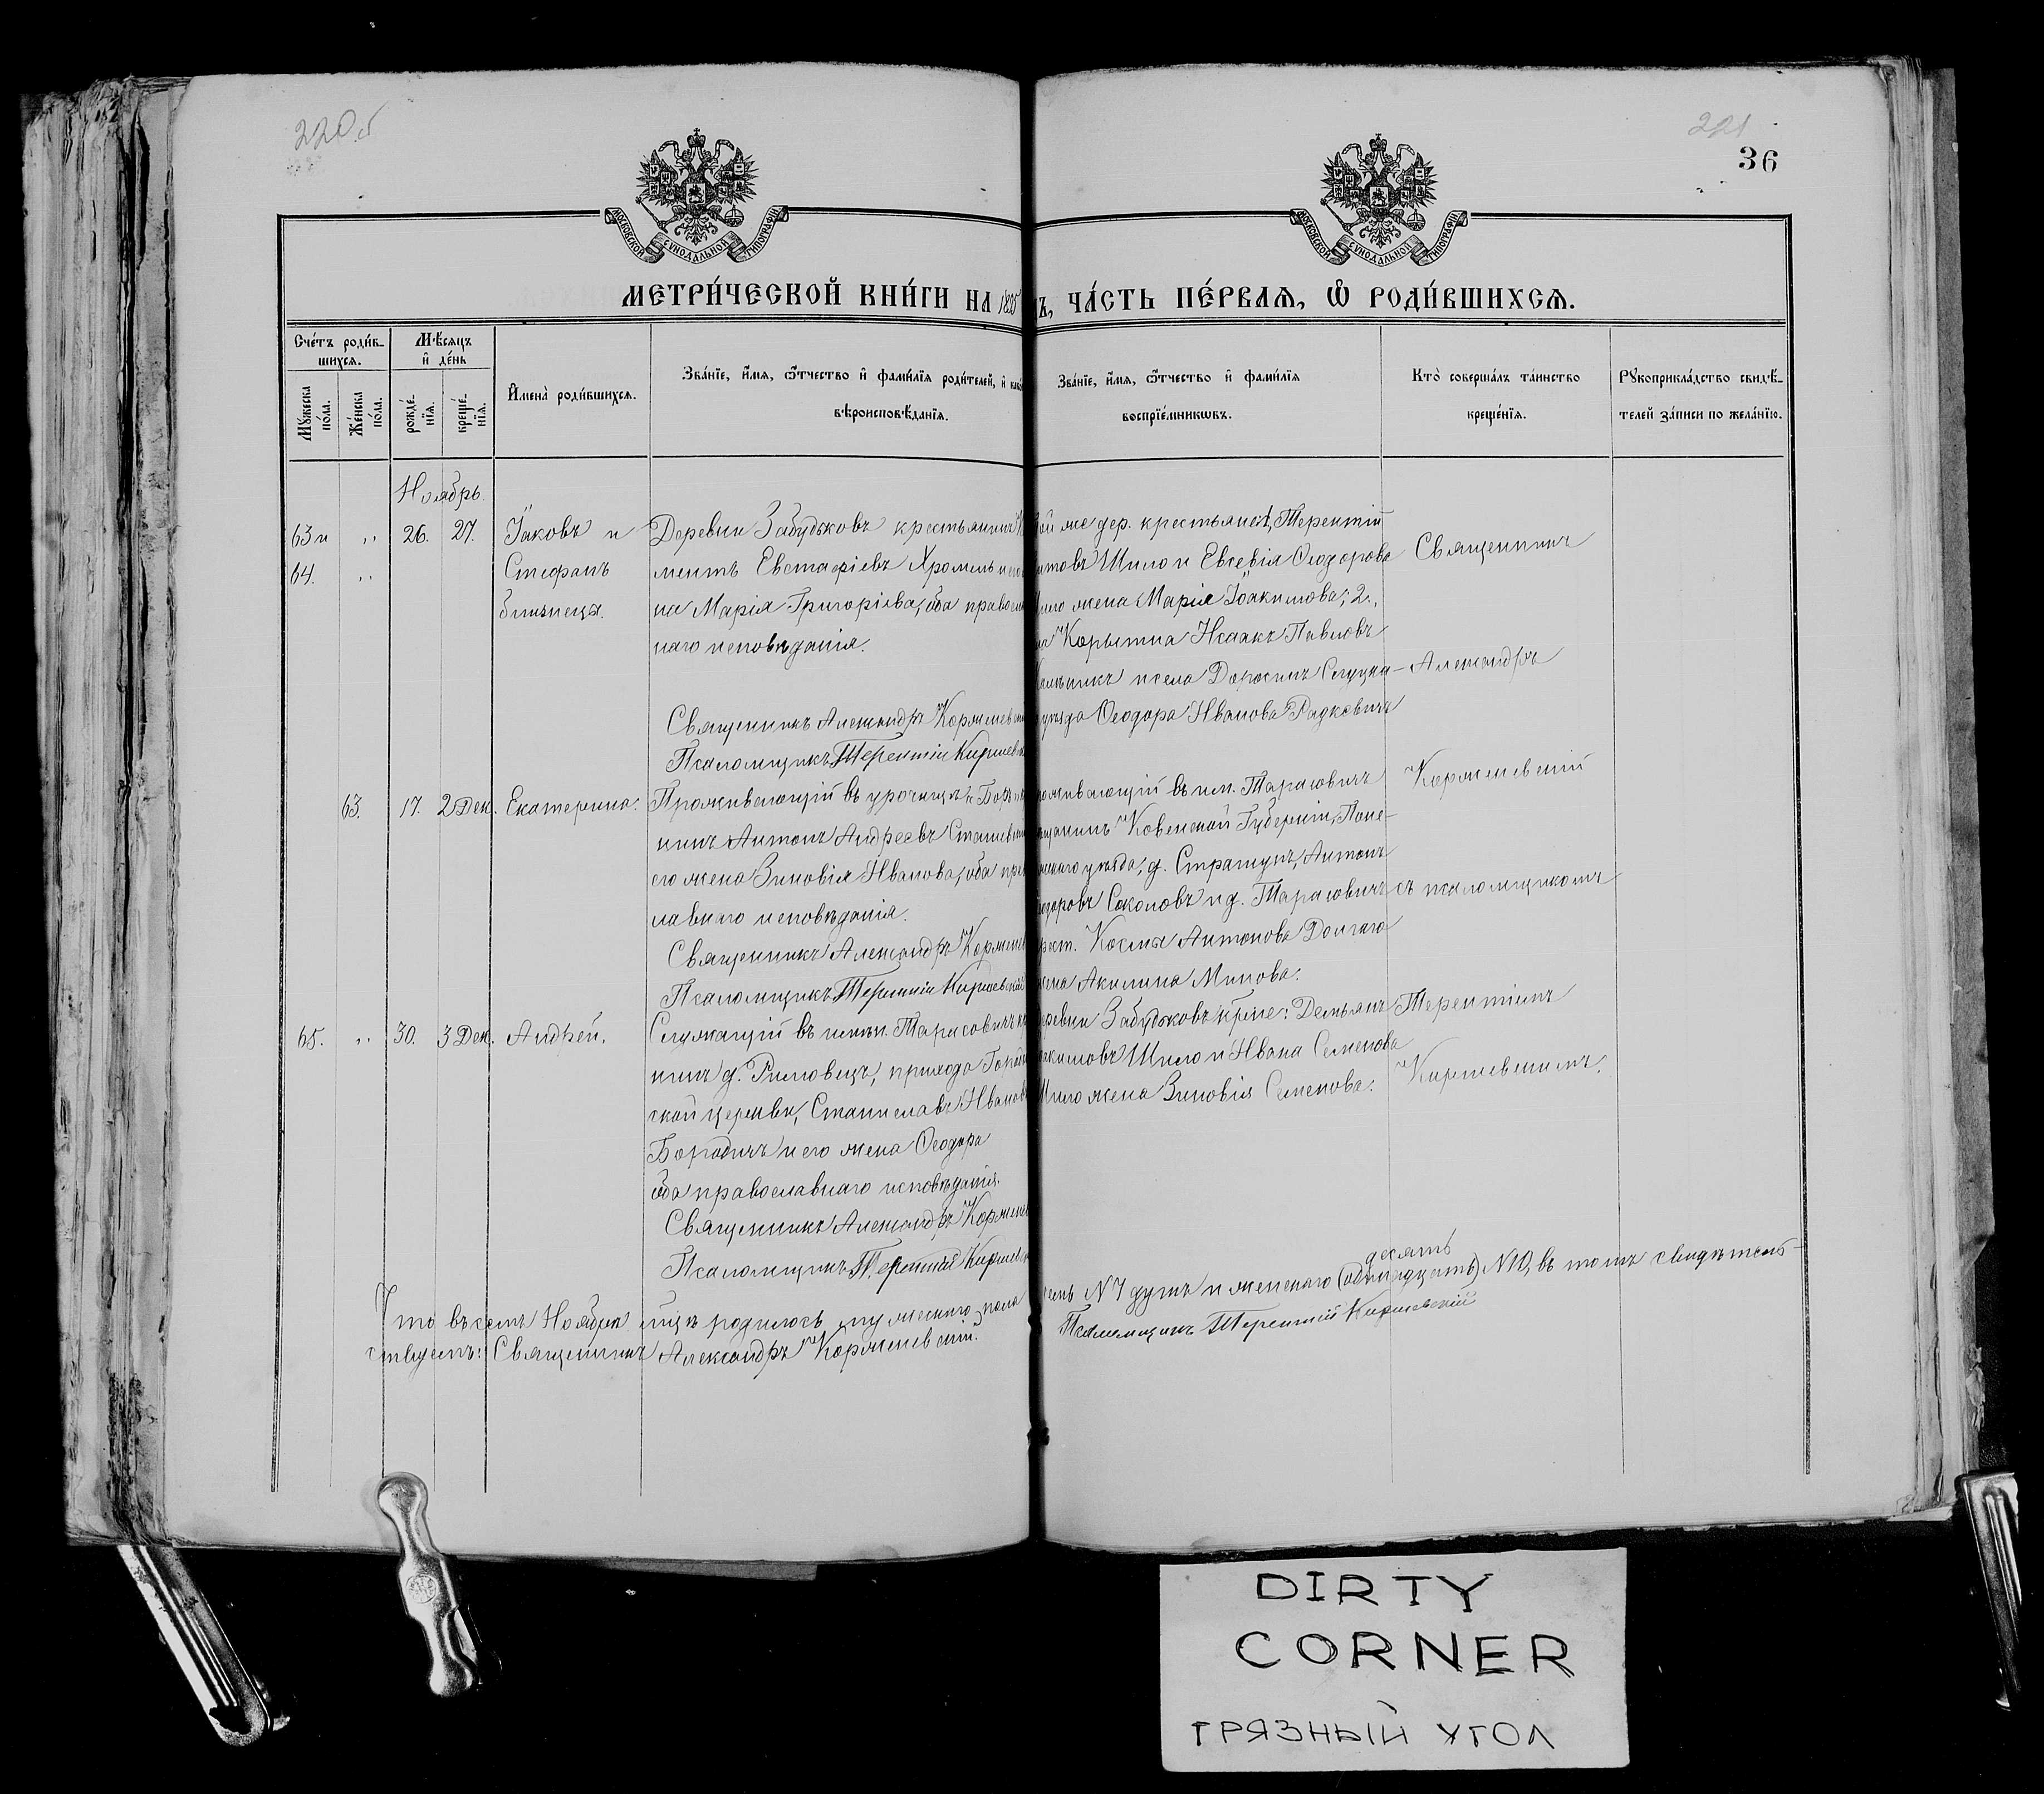 220б
221
36
МОСКОВСКОЙ СѴНОДАЛЬНОЙ ТИПОГРАФІИ
МОСКОВСКОЙ СѴНОДАЛЬНОЙ ТИПОГРАФІИ
МЕТРИ́ЧЕСКОЙ КНИ́ГИ НА 1885
Ъ, ЧА́СТЬ ПЕ́РВАЯ, Ѡ҆ РОДИ́ВШИХСѦ.
Сче́тъ роди́в-
шихся.
Мѣ́сяцъ
и҆ де́нь
Мꙋ́жеска
по́ла.
Же́нска
по́ла.
рожде́-
нїѧ.
креще́-
нїѧ.
И҆мена̀ роди́вшихсѧ.
Зва́нїе, и҆́мѧ, ѻ҆́тчество и҆ фами́лїѧ роди́телей, и҆
вѣроисповѣ́данїѧ.
Зва́нїе, и҆́мѧ, ѻ҆́тчество и҆ фами́лїѧ
воспрїе́мникѡвъ.
Кто̀ соверша́лъ та́инство
креще́нїѧ.
Рꙋкоприкла́дство свидѣ́-
телей за́писи по жела́нїю.
Ноябрь.
63 и „ 26. 27. Іаковъ и
64. „ Стефанъ
близнецы.
Деревни Забудьковъ крестьянинъ
ментъ Евстафіевъ Хромель и его
на Марія Григоріева, оба правосла
наго исповѣданія.
Священникъ Александръ Коржене
Псаломщикъ Терентій Киршев
ой же дер. крестьяне: 1, Терентій
Шило и Евгевія Ѳеодорова
ило жена Марія Іоакимова; 2.,
Корытна Исаакъ Павловъ
и села Доросинъ Слуцка-
уѣзда Ѳеодора Иванова Радкевичъ
Священникъ
Александръ
Корженевскій
съ псаломщикомъ
Терентіемъ
Киршевскимъ.
63. 17. 2 Дек. Екатерина.
Проживающій въ урочищѣ Боръ
нинъ Антонъ Андреевъ
его жена Зиновія Иванова, оба пра
лавнаго исповѣданія.
Священникъ Александръ Коржене
Псаломщикъ Терентій Киршевскій
оживающій въ им. Тарасовичъ
щанинъ Ковенской Губерніи, Поне-
жскаго уѣзда, д. Антонъ
Соколовъ и д. Тарасовичъ
рест. Косма Антонова Долгаго
жена Акилина Минова.
65. „ 30. 3 Дек. Андрей.
Служащій въ имѣн. Тарасовичъ
нинъ д. Римовецъ, прихода
ской церкви, Станиславъ Иванов
Бородичъ и его жена Ѳеодора
оба православнаго исповѣданія.
Священникъ Александръ Коржене
Псаломщикъ Терентій Киршев
еревни Забудьковъ крес: Демьянъ
акимовъ Шило и Ивана Семенова
Шило жена Зиновія Семенова.
Что въ семъ Ноябрѣ мц҃ѣ родилось мужескаго пола
емь №7 душъ и женскаго (одинадцать) десять №10, въ томъ свидѣтель-
ствуемъ: Священникъ Александръ Корженевскій.
Псаломщикъ Терентій Киршевскій
DIRTY
CORNER
ГРЯЗНЫЙ УГОЛ